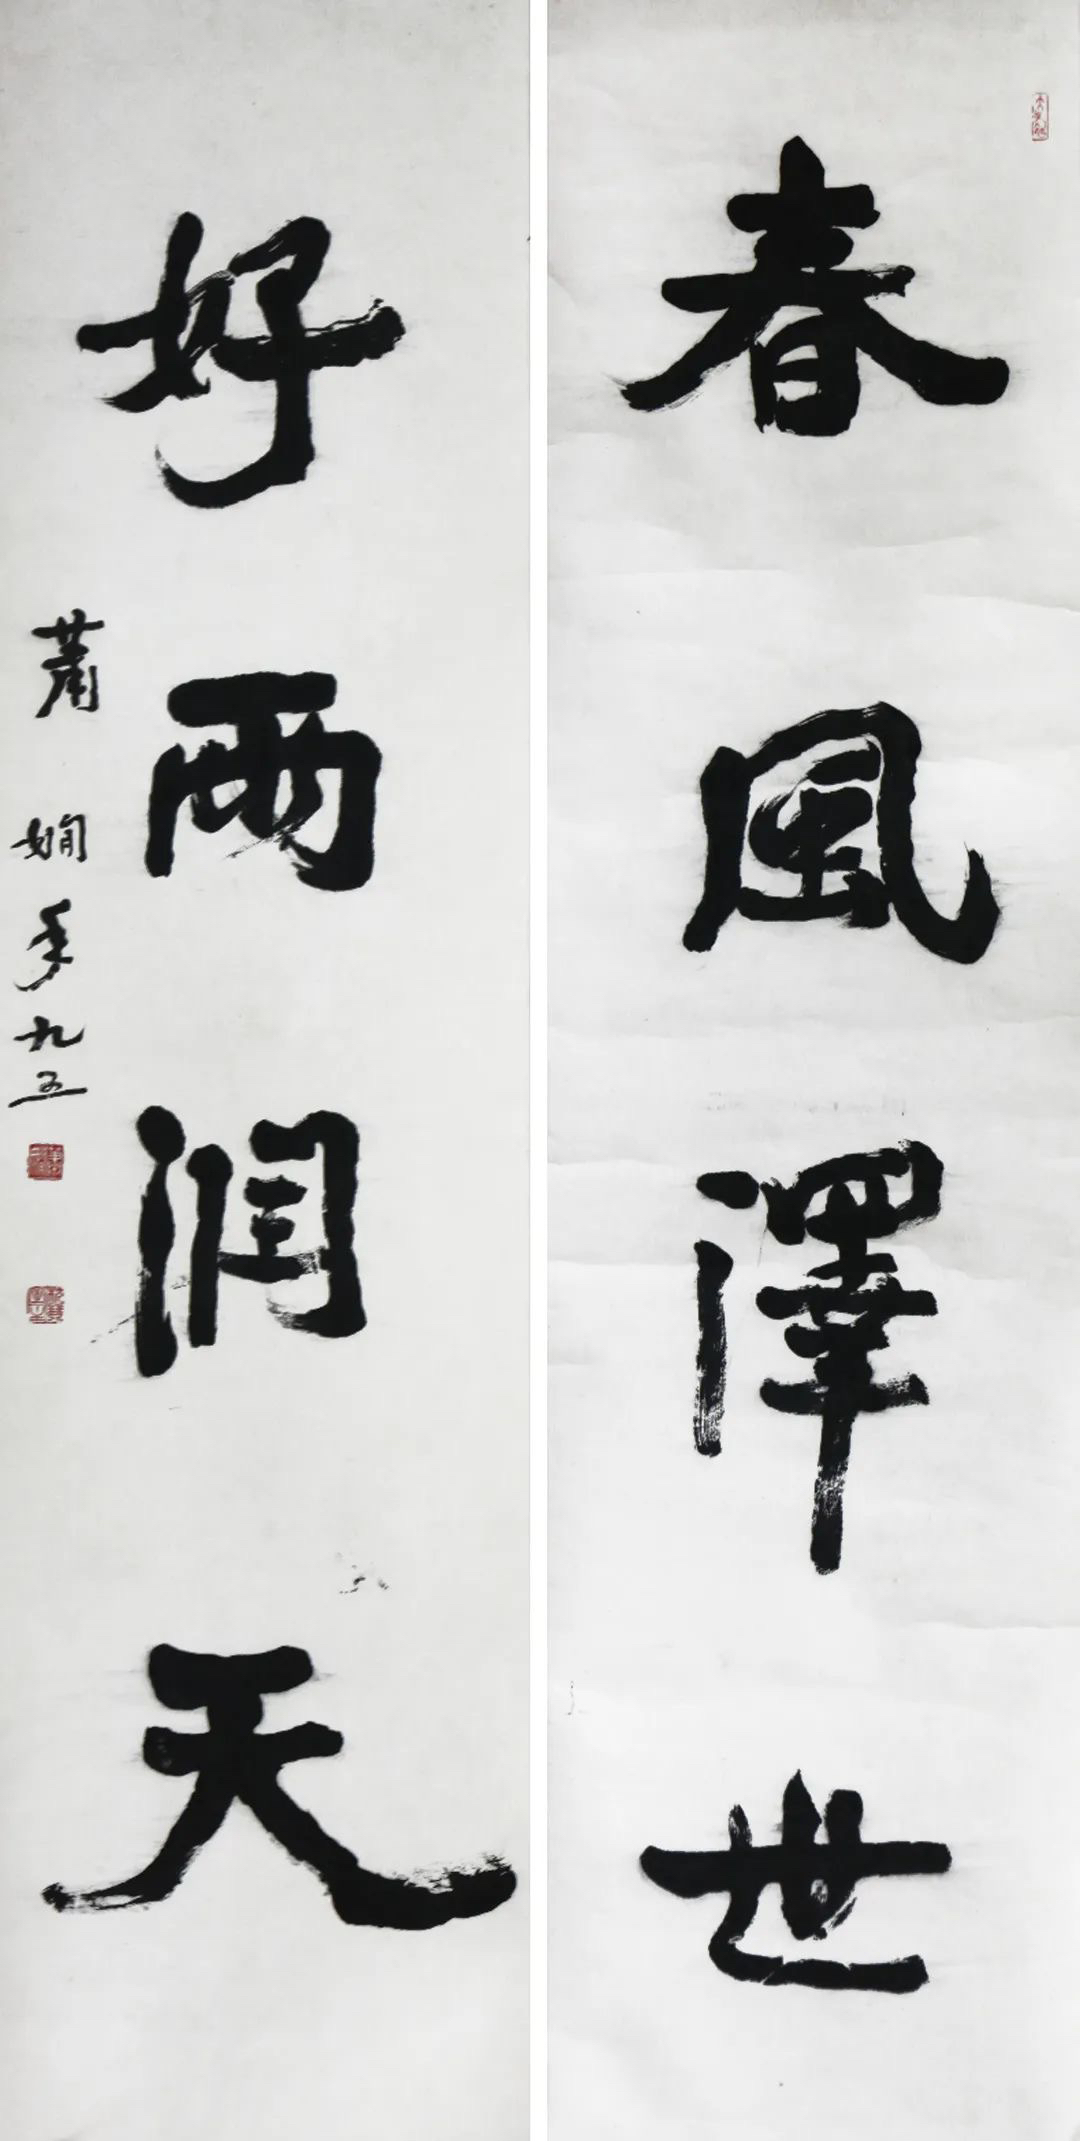 春風澤世
好雨潤天
蕭嫻年九五